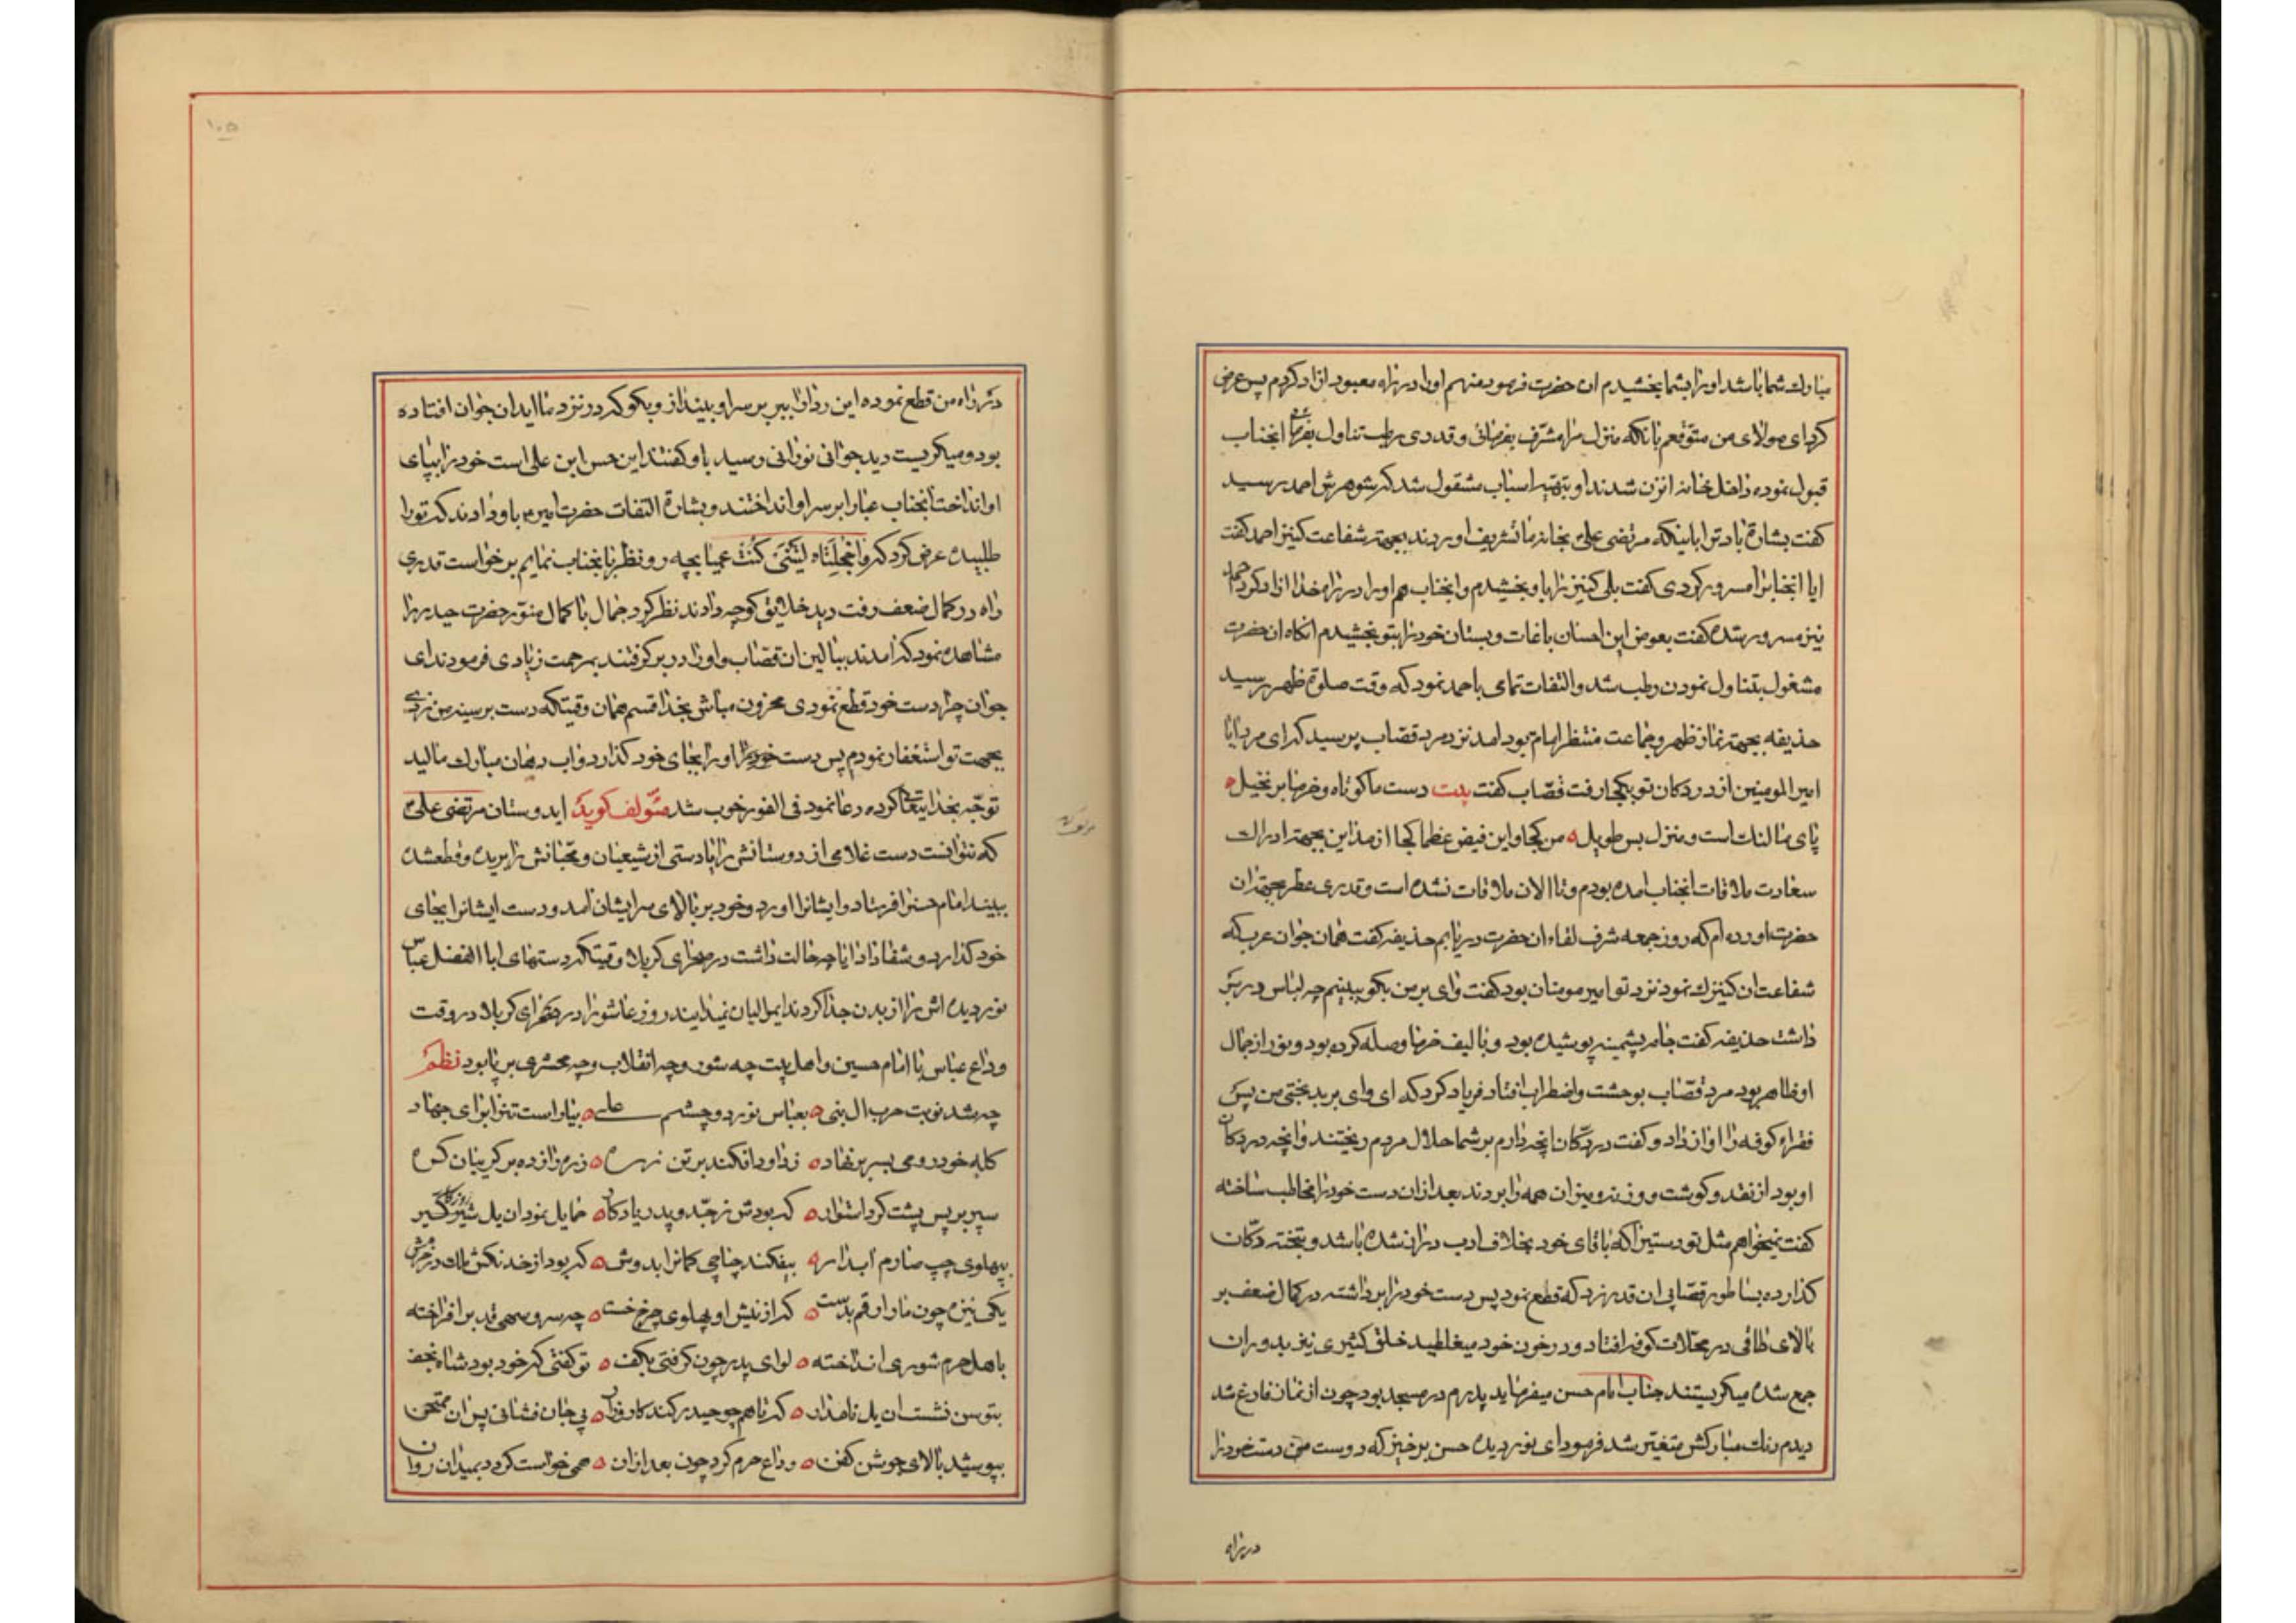 مبارك شما باشد اورا بشما بخشیدم ان حضرت فرمود منهم اورا در راه معبود ازاد کردم پس عرض
کرد ای مولای من متوقعم بانکه منزل مرا مشرف بفرمائی و قدری رطب تناول بفرمائی انجناب
قبول نموده داخل خانه انزن شدند او بتهیه اسباب مشقول شد که شوهرش احمد رسید
کفت بشارة باد ترا باینکه مرتضی علی بخانه ما تشریف اوردند بجهته شفاعت کنیز احمد کفت
ایا انجنابرا مسرور کردی کفت بلی کنیز را باو بخشیدم و انجناب هم اورا در راه خدا ازاد کرد احمد
نیز مسرور شده کفت بعوض این احسان باغات و بستان خودرا بتو بخشیدم انکاه ان حضرت
مشغول بتناول نمودن رطب شد و التفات تمامی باحمد نمود که وقت صلوة ظهر رسید
حذیفه بجهته نماز ظهر و جماعت منتظر امام بود امد نزد مرد قصاب پرسید که ای مرد ایا
امیر المومنین از در دکان تو بکجا رفت قصّاب کفت بیت دست ما کوتاه و خرما بر نخیل
پای ما لنك است و منزل بس طویل من کجا و این فیض عظما کجا از مذاین بجهته ادراك
سعادت ملاقات انجناب امده بودم و تا الان ملاقات نشده است و قدری عطر بجهته ان
حضرت اورده ام که روز جمعه شرف لقاء ان حضرت دریابم حذیفه کفت همان جوان عرب که
شفاعت ان کنیزك نمود نزد تو امیر مومنان بود کفت وای بر من بکو ببینم چه لباس در بر
داشت حذیفه کفت جامه پشمینه پوشیده بود و با لیف خرما وصله کرده بود و نور از جمال
او ظاهر بود مرد قصّاب بوحشت و اضطراب افتاد فریاد کرد که ای وای بر بدبختی من پس
فقراء کوفه را اواز داد و کفت در دکان انچه دارم بر شما حلال مردم ریختند و انچه در دکان
او بود از نقد و کوشت و وزنه و میزان همه را بردند بعد از ان دست خود را مخاطب ساخته
کفت نمیخواهم مثل تو دستیرا که با قای خود بخلاف ادب دراز نشده باشد و بتخته دکان
کذارده بساطور قصّابی ان قدر زد که قطع نمود پس دست خودرا برداشته در کمال ضعف بر
بالای طاقی در محلات کوفه افتاد و در خون خود میغلطید خلق کثیری نیز بدور ان
جمع شده میکریستند جناب امام حسن میفرماید پدرم در مسجد بود چون از نماز فارغ شد
دیدم رنك مبارکش متغیّر شد فرمود ای نور دیده حسن برخیز که دوست من دست خودرا
در راه
۱۰۵
در راه من قطع نموده این ردا را ببر بر سر او بینداز و بکو که در نزد ما اید ان جوان افتاده
بود و میکریست دید جوانی نورانی رسید باو کفتند این حسن ابن علی است خود را بپای
او انداخت انجناب عبا را بر سر او انداختند و بشارة التفات حضرت امیر باو دادند که تورا
طلبیده عرض کرد که واخجلتاه لیتنی کنت عمیا بچه رو نظر بانجناب نمایم برخواست قدری
راه در کمال ضعف رفت دید خلایق کوچه دادند نظر کرد جمال با کمال منوّر حضرت حیدر را
مشاهده نمود که امدند ببالین ان قصّاب و اورا در بر کرفتند بمرحمت زیادی فرمودند ای
جوان چرا دست خود قطع نمودی محزون مباش بخدا قسم همان وقتیکه دست بر سینه من زدی
بجهت تو استغفار نمودم پس دست خود را اورا بجای خود کذارد و اب دهان مبارك مالید
توجّه بخدایتعا کرده دعا نمود فی الفور خوب شد مؤلف کوید ایدوستان مرتضی علی
که نتوانست دست غلامی از دوستانش را یا دستی از شیعیان و محبّانش را بریده و قطع شده
ببیند امام حسنرا فرستاد و ایشانرا اورد و خود بر بالای سر ایشان امد و دست ایشانرا بجای
خود کذارد و شفا داد ایا چه حالت داشت در صحرای کربلا وقتیکه دستهای ابا الفضل عباس
نور دیده اش را از بدن جدا کردند ایموالیان نمیدانید روز عاشورا در صحرای کربلا در وقت
وداع عباس با امام حسین و اهل بیت چه شور و چه انقلاب و چه محشری بر پا بود نظم
چه شد نوبت حرب ال بنی بعباس نور دو چشم علی بیاراست تنرا برای جهاد
کله خود رومی بسر بر نهاد زداود افکند بر تن زره زره را زده بر کریبان کره
سپر بر پس پشت کرد استوار که بودش ز جدّ و پدر یادکار حمایل نمود ان یل شیرکیر
بپهلوی چپ صارم ابدار بیفکند چاچی کمانرا بدوش که بود از خدنکش ملك در خروش
یکی نیزه چون مار ارقم بدست که از نیش او پهلوی چرخ خست چه سرو سهی قد بر افراخته
باهل حرم شوری انداخته لوای پدر چون کرفتی بکف تو کفتی که خود بود شاه نجف
بتوسن نشست ان یل نامدار که تا هم چو حیدر کند کارزار پی جان فشانی پس ان ممتحن
بپوشید بالای جوشن کفن وداع حرم کرد چون بعد از ان همی خواست کردد بمیدان روان